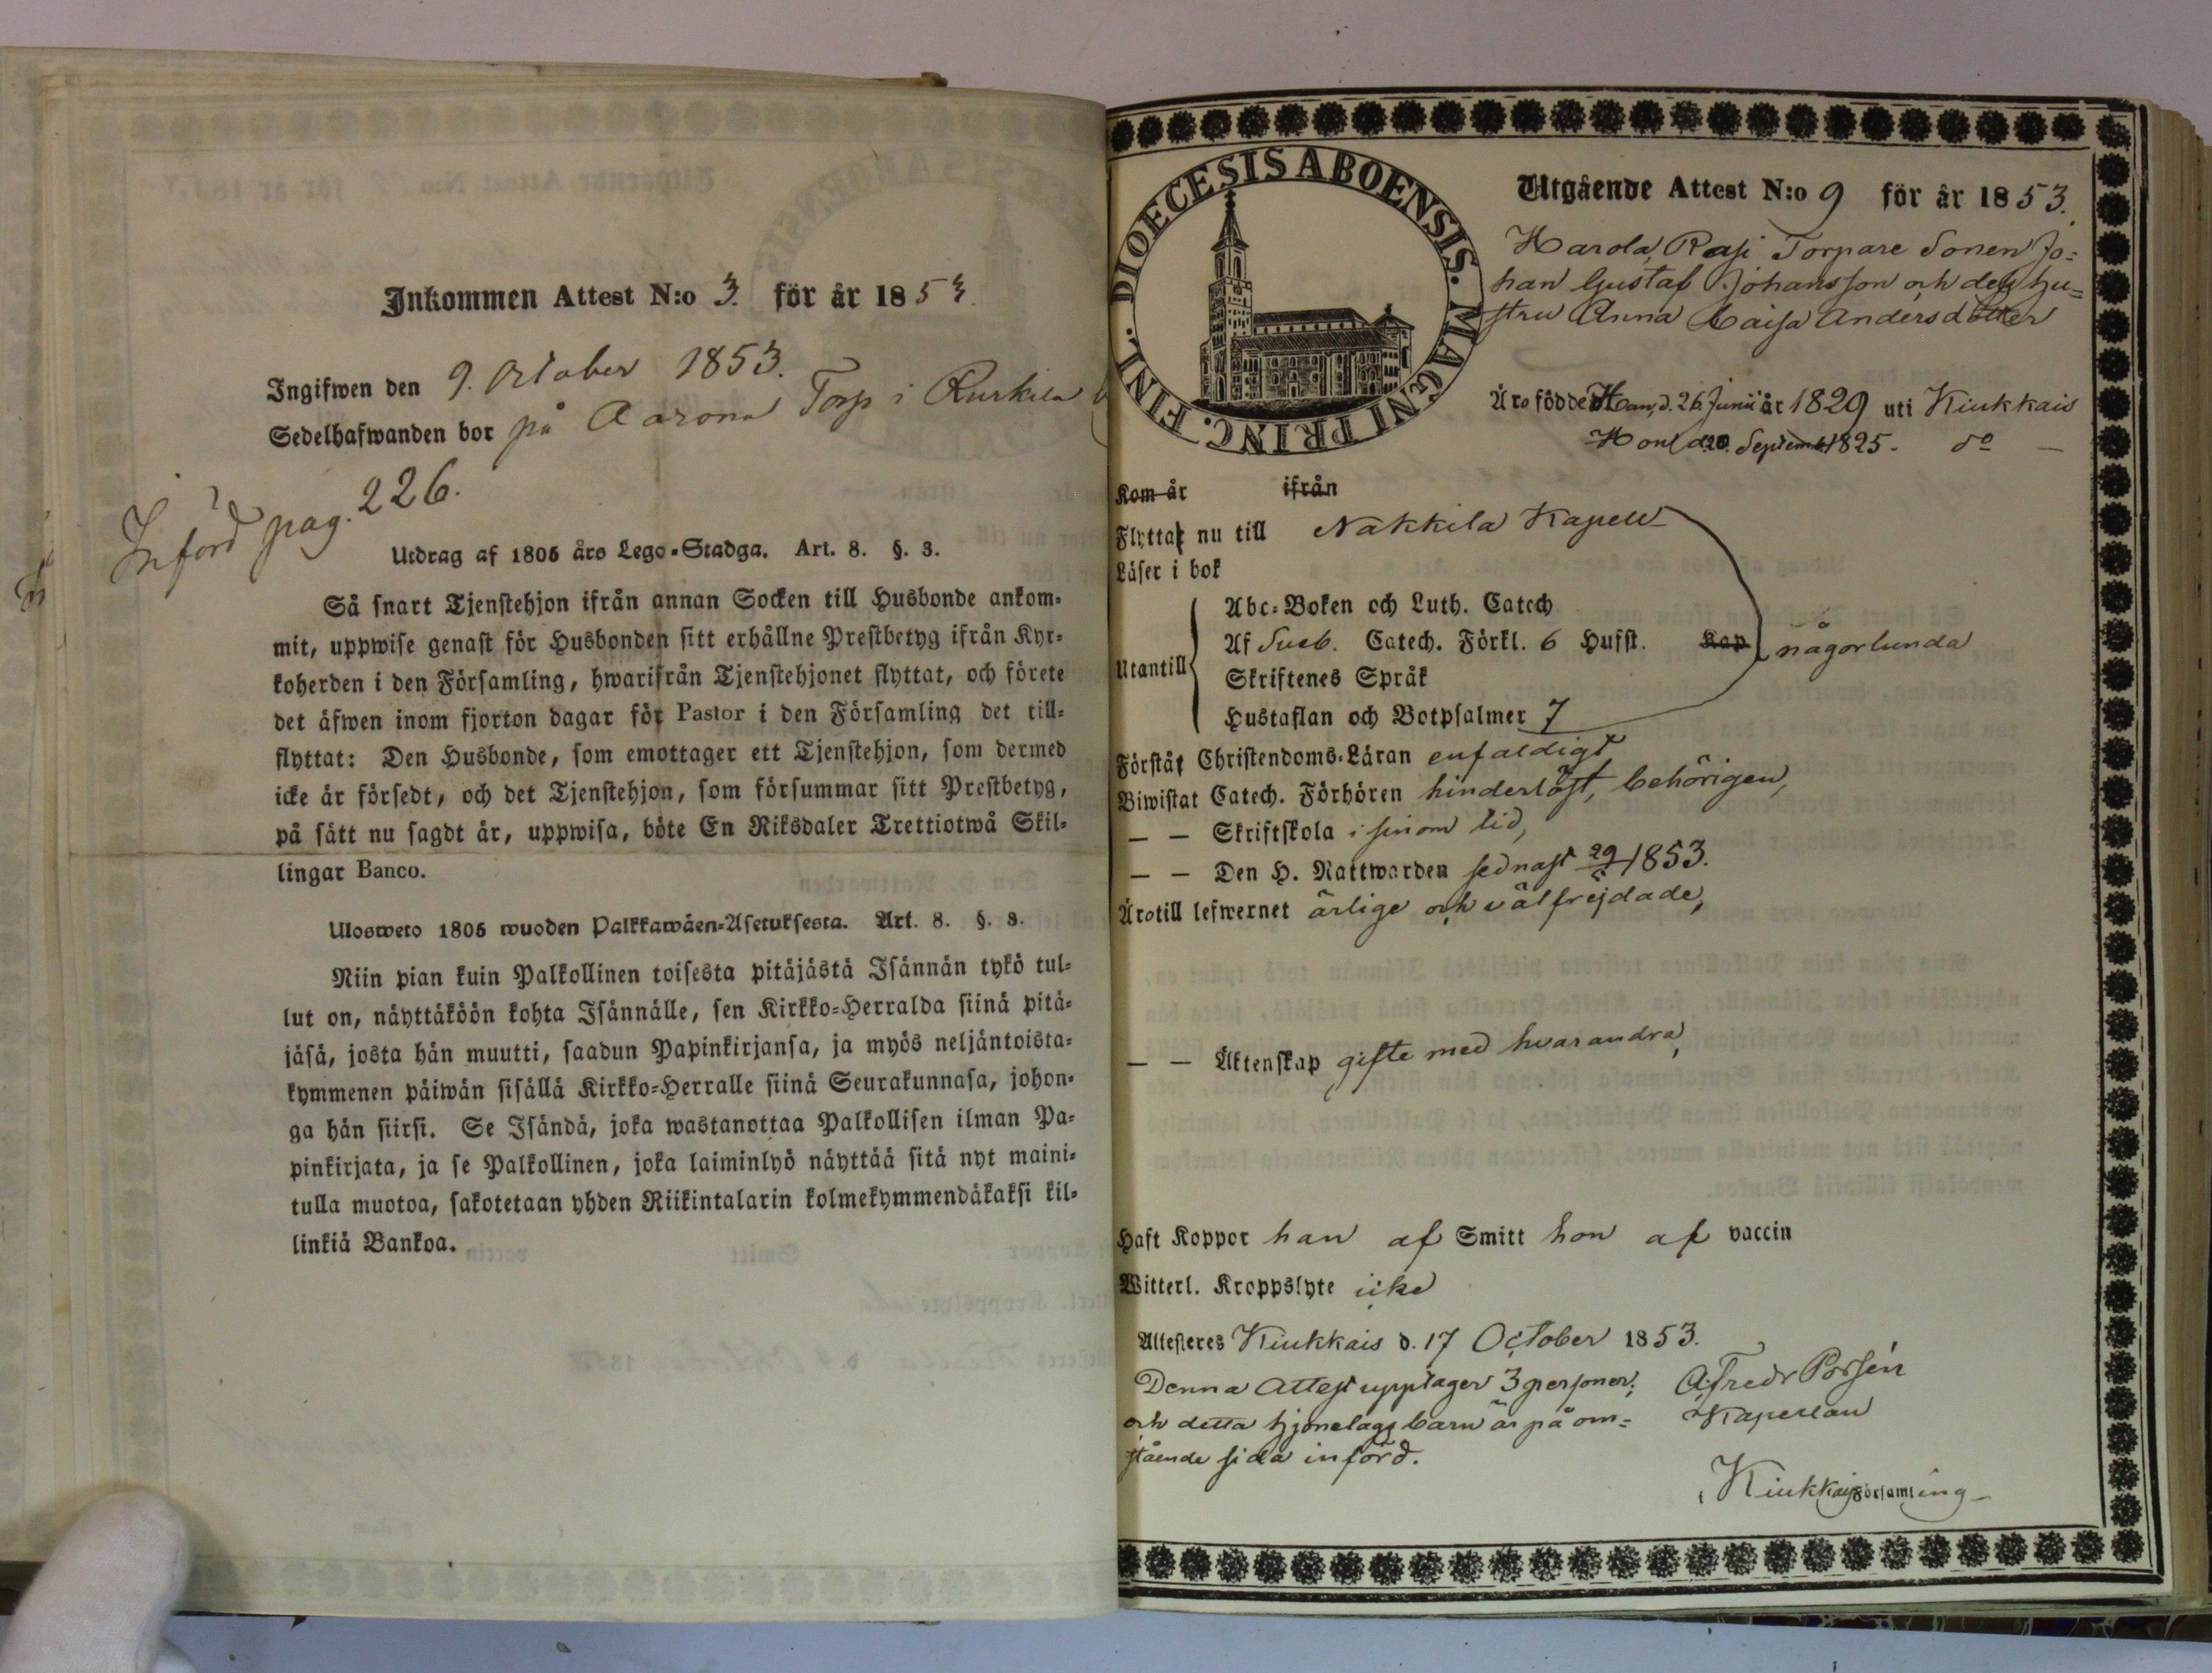 Inkommen Attest N:o 3. för år 1853
Ingifwen den 9. October 1853.
Sedelhafwanden bor på Aarona Torp i Kurkela
Införd pag. 226.
Utdrag af 1805 års Lego-Stadga. Art. 8. §. 3.
Så snart Tjenstehjon ifrån annan Socken till Husbonde ankom-
mit, uppwise genast för Husbonden sitt erhållne Prestbetyg ifrån Kyr-
koherden i den Församling, hwarifrån Tjenstehjonet flyttat, och förete
det äfwen inom fjorton dagar för Pastor i den Församling det till-
flyttat: Den Husbonde, som emottager ett Tjenstehjon, som dermed
icke är försedt, och det Tjenstehjon, som försummar sitt Prestbetyg,
på sätt nu sagdt är, uppwisa, böte En Riksdaler Trettiotwå Skil-
lingar Banco.
Ulosweto 1805 wuoden Palkkawäen-Asetuksesta. Art. 8. §. 3.
Niin pian kuin Palkollinen toisesta pitäjästä Isännän tykö tul-
lut on, näyttäköön kohta Isännälle, sen Kirkko-Herralda siinä pitä-
jäsä, josta hän muutti, saadun Papinkirjansa, ja myös neljäntoista-
kymmenen päiwän sisällä Kirkko-Herralle siinä Seurakunnasa, johon-
ga hän siirsi. Se Isändä, joka wastanottaa Palkollisen ilman Pa-
pinkirjata, ja se Palkollinen, joka laiminlyö näyttää sitä nyt maini-
tulla muotoa, sakotetaan yhden Riikintalarin kolmekymmendäkaksi kil-
linkiä Bankoa.
DIOECESIS ABOENSIS. MAGNI PRINC. FINL.
Utgående Attest N:o 9 för år 1853.
Harola, Rasi Torpare Sonen Jo-
han Gustaf Johansson och dess hu-
stru Anna Caisa Andersdotter
Äro födde Han, d. 26 Junii år 1829 uti Kiukkais
Hon d. 20. Septemb. 1825. d:o
Kom år ifrån
Flytta nu till Nakkila Kapell
Läser i bok
Utantill
Abc-Boken och Luth. Catech
Af Sveb. Catech. Förkl. 6 Hufst. Kap
Skriftenes Språk
Hustaflan och Botpsalmer 7
någorlunda
Förstå Christendoms-Läran enfaldigt
Biwistat Catech. Förhören hinderlöst, behörigen,
— — Skriftskola i sinom tid,
— — Den H. Nattwarden sednast 29/5 1853.
Äro till lefwernet ärlige och välfrejdade,
— — Äktenskap gifte med hvarandra,
Haft Koppor han af Smitt hon af vaccin
Witterl. Kroppslyte icke
Attesteres Kiukkais d. 17 October 1853.
Denna Attest upptager 3 personer,
och detta hjonelags barn är på om-
stående sida införd.
A. Fredr Porsén
Kapellan
i Kiukkais Församling